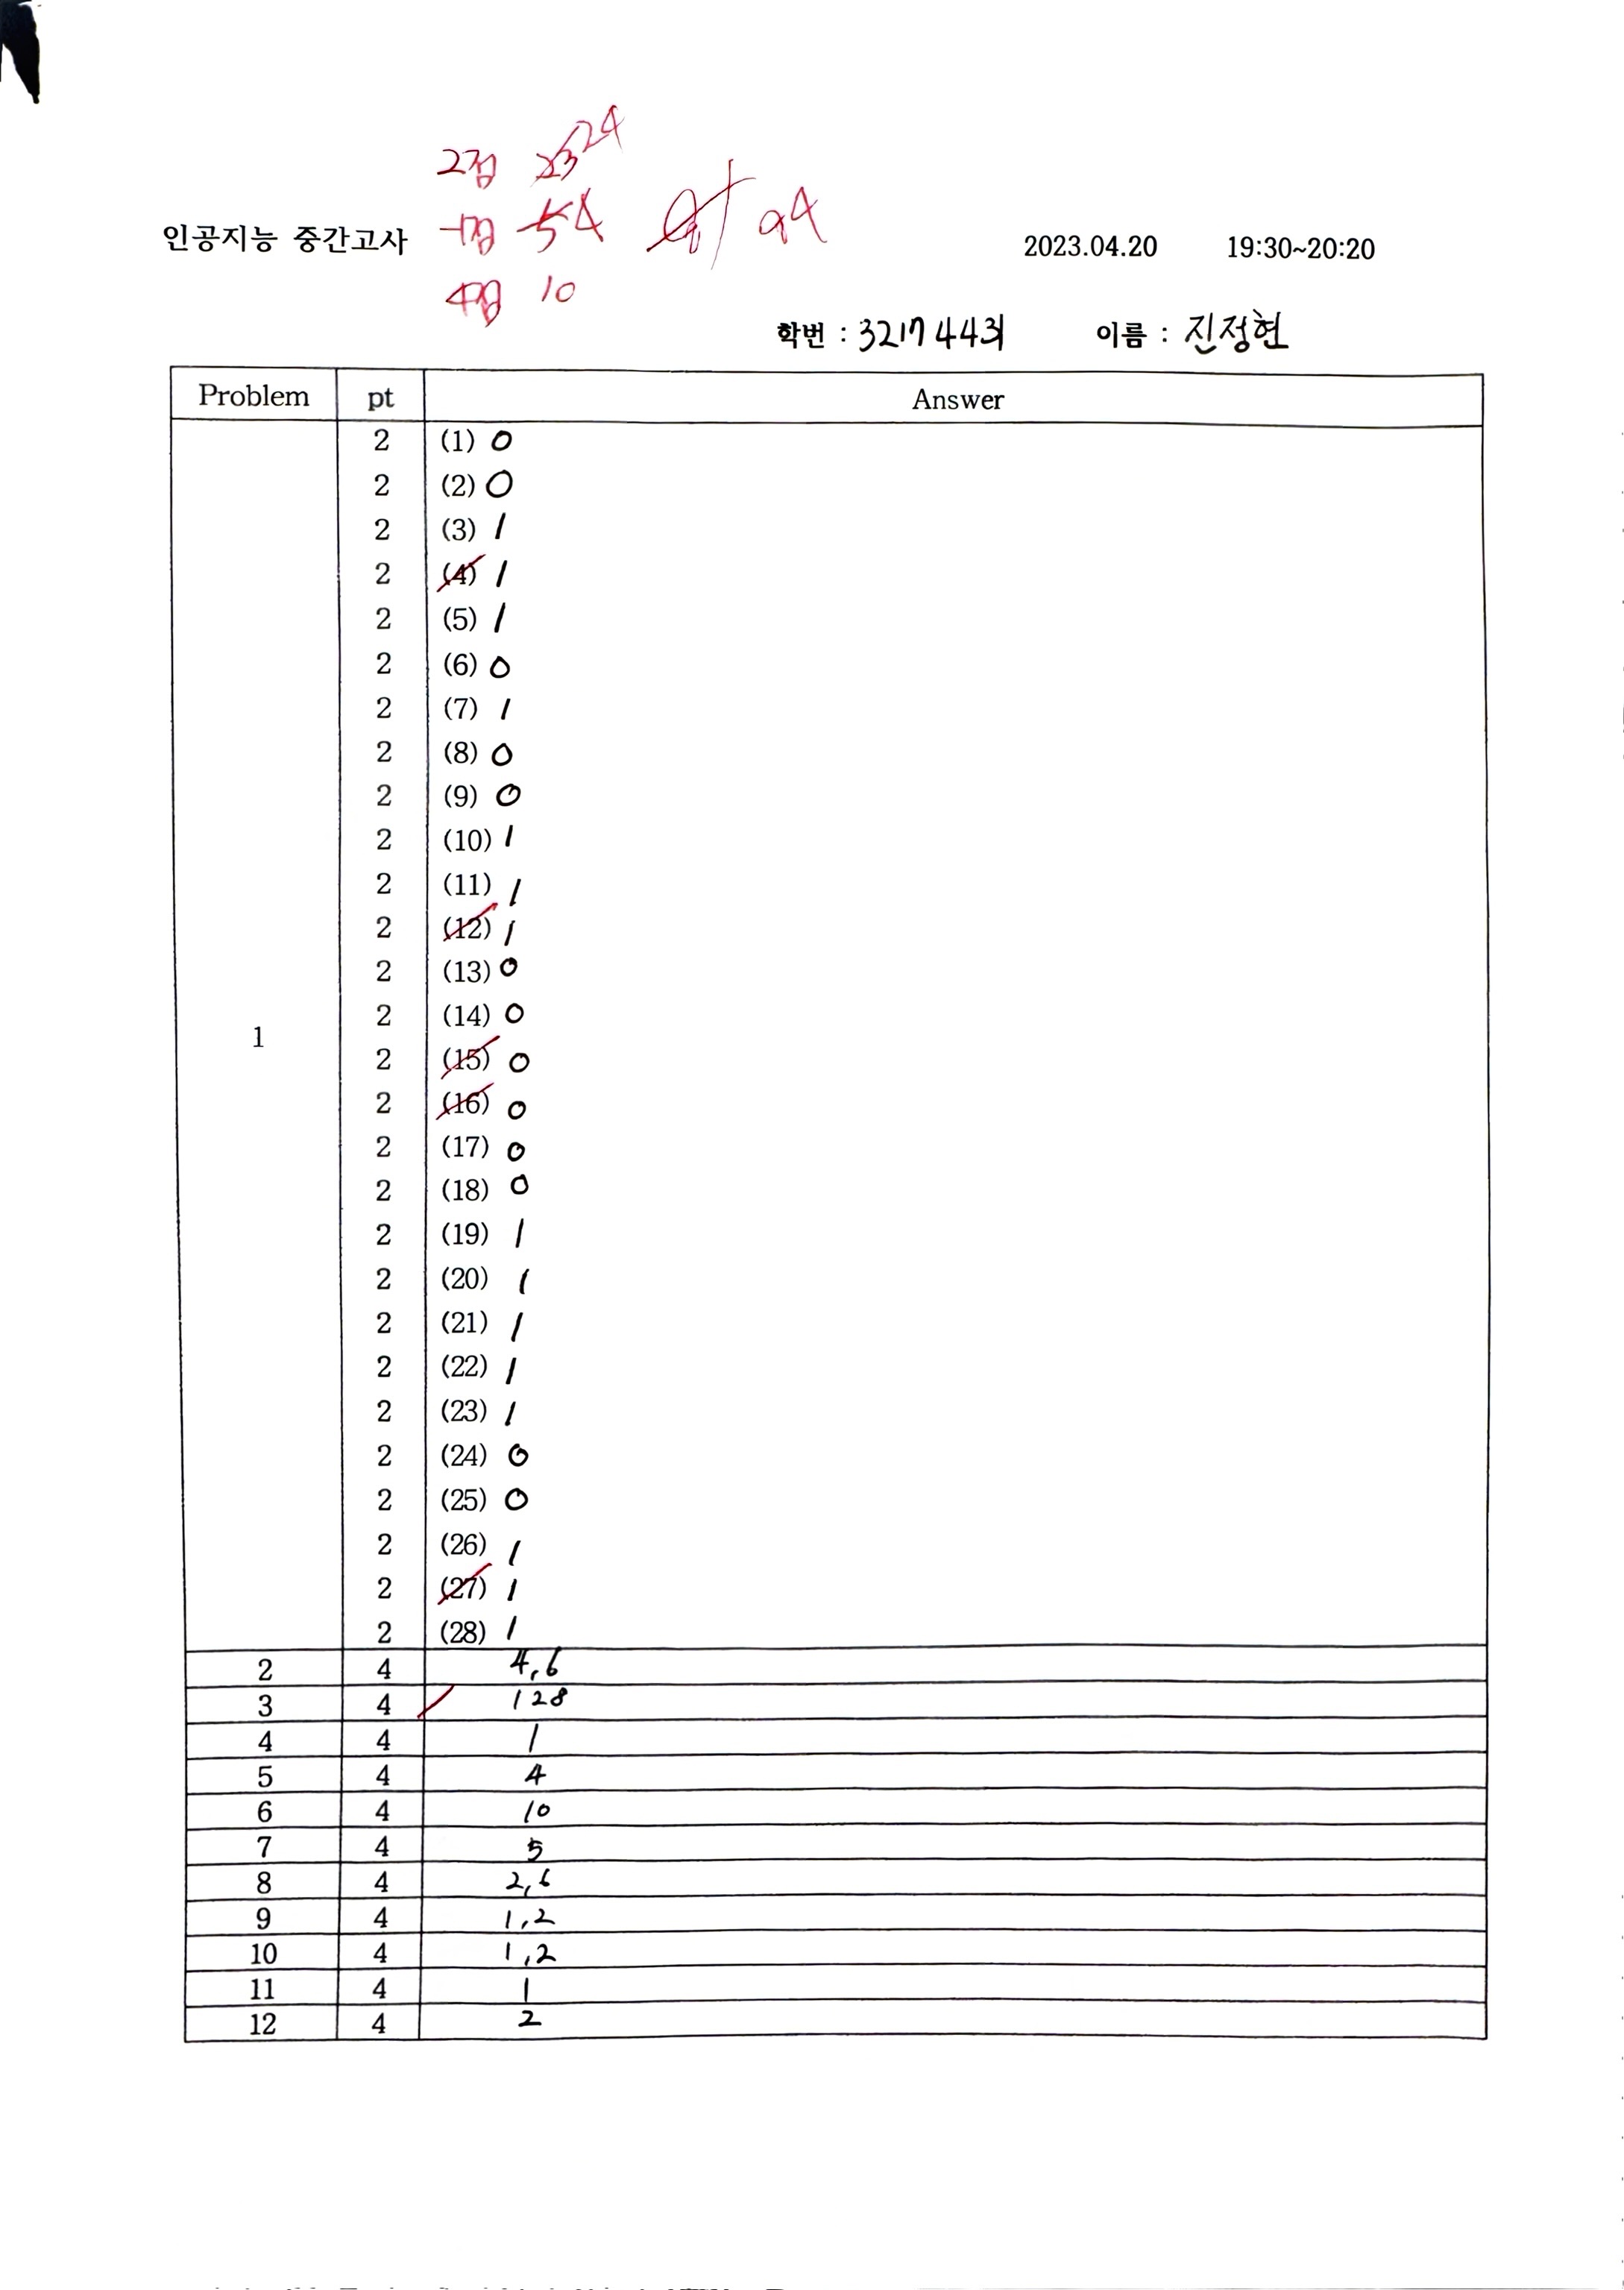 2점 23 24
인공지능 중간고사 -1점 5 4 94
2023.04.20 19:30~20:20
4점 10
학번 : 32174431 이름 : 진정현
Problem pt Answer
1
2 (1) 0
2 (2) 0
2 (3) 1
2 (4) 1
2 (5) 1
2 (6) 0
2 (7) 1
2 (8) 0
2 (9) 0
2 (10) 1
2 (11) 1
2 (12) 1
2 (13) 0
2 (14) 0
2 (15) 0
2 (16) 0
2 (17) 0
2 (18) 0
2 (19) 1
2 (20) 1
2 (21) 1
2 (22) 1
2 (23) 1
2 (24) 0
2 (25) 0
2 (26) 1
2 (27) 1
2 (28) 1
2 4 4,6
3 4 128
4 4 1
5 4 4
6 4 10
7 4 5
8 4 2,6
9 4 1,2
10 4 1,2
11 4 1
12 4 2